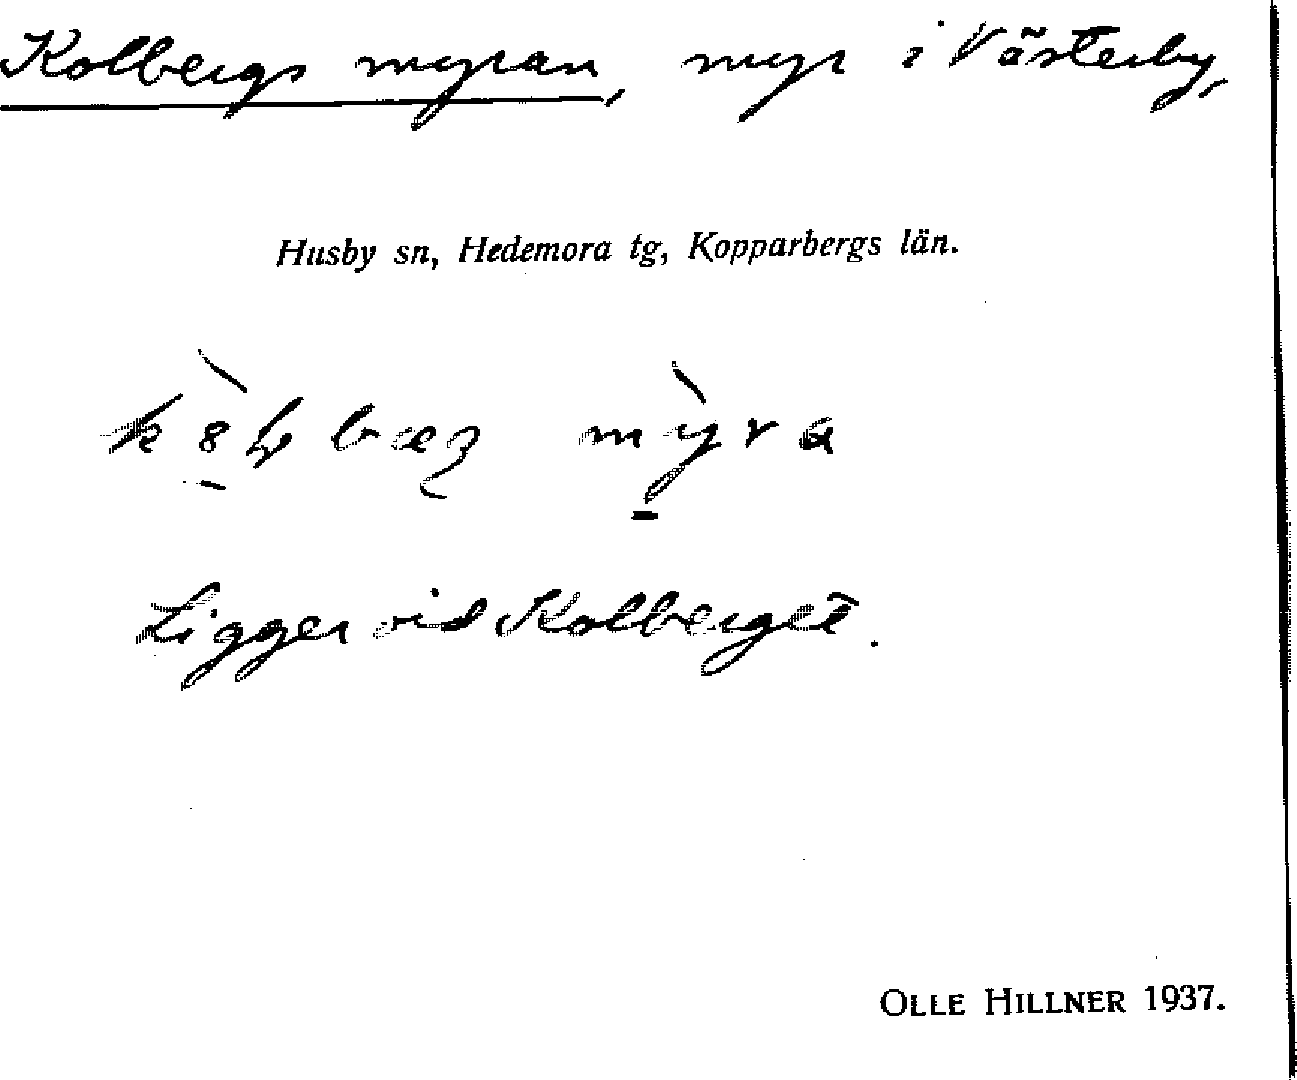 Kolbergs myran, myr i Västerby,
Husby sn, Hedemora tg, Kopparbergs län.
myra
Ligger vid Kolberget.
OLLE HILLNER 1937.